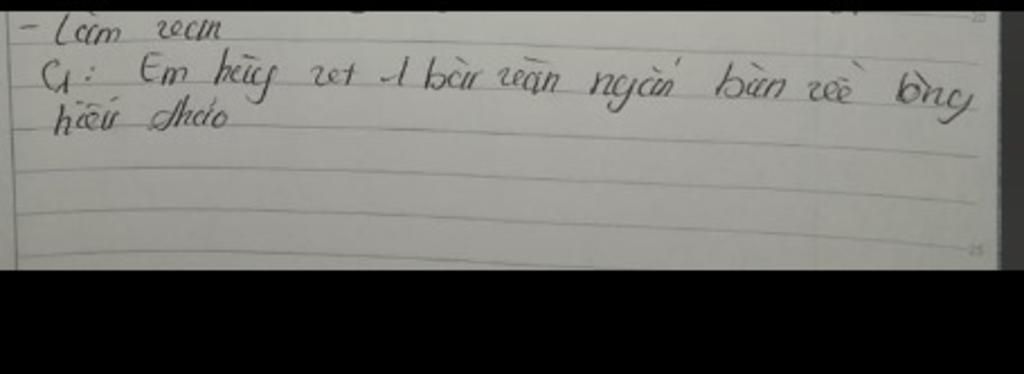 - Làm văn
C1: Em hãy viết 1 bài văn ngắn bàn về lòng
hiếu thảo